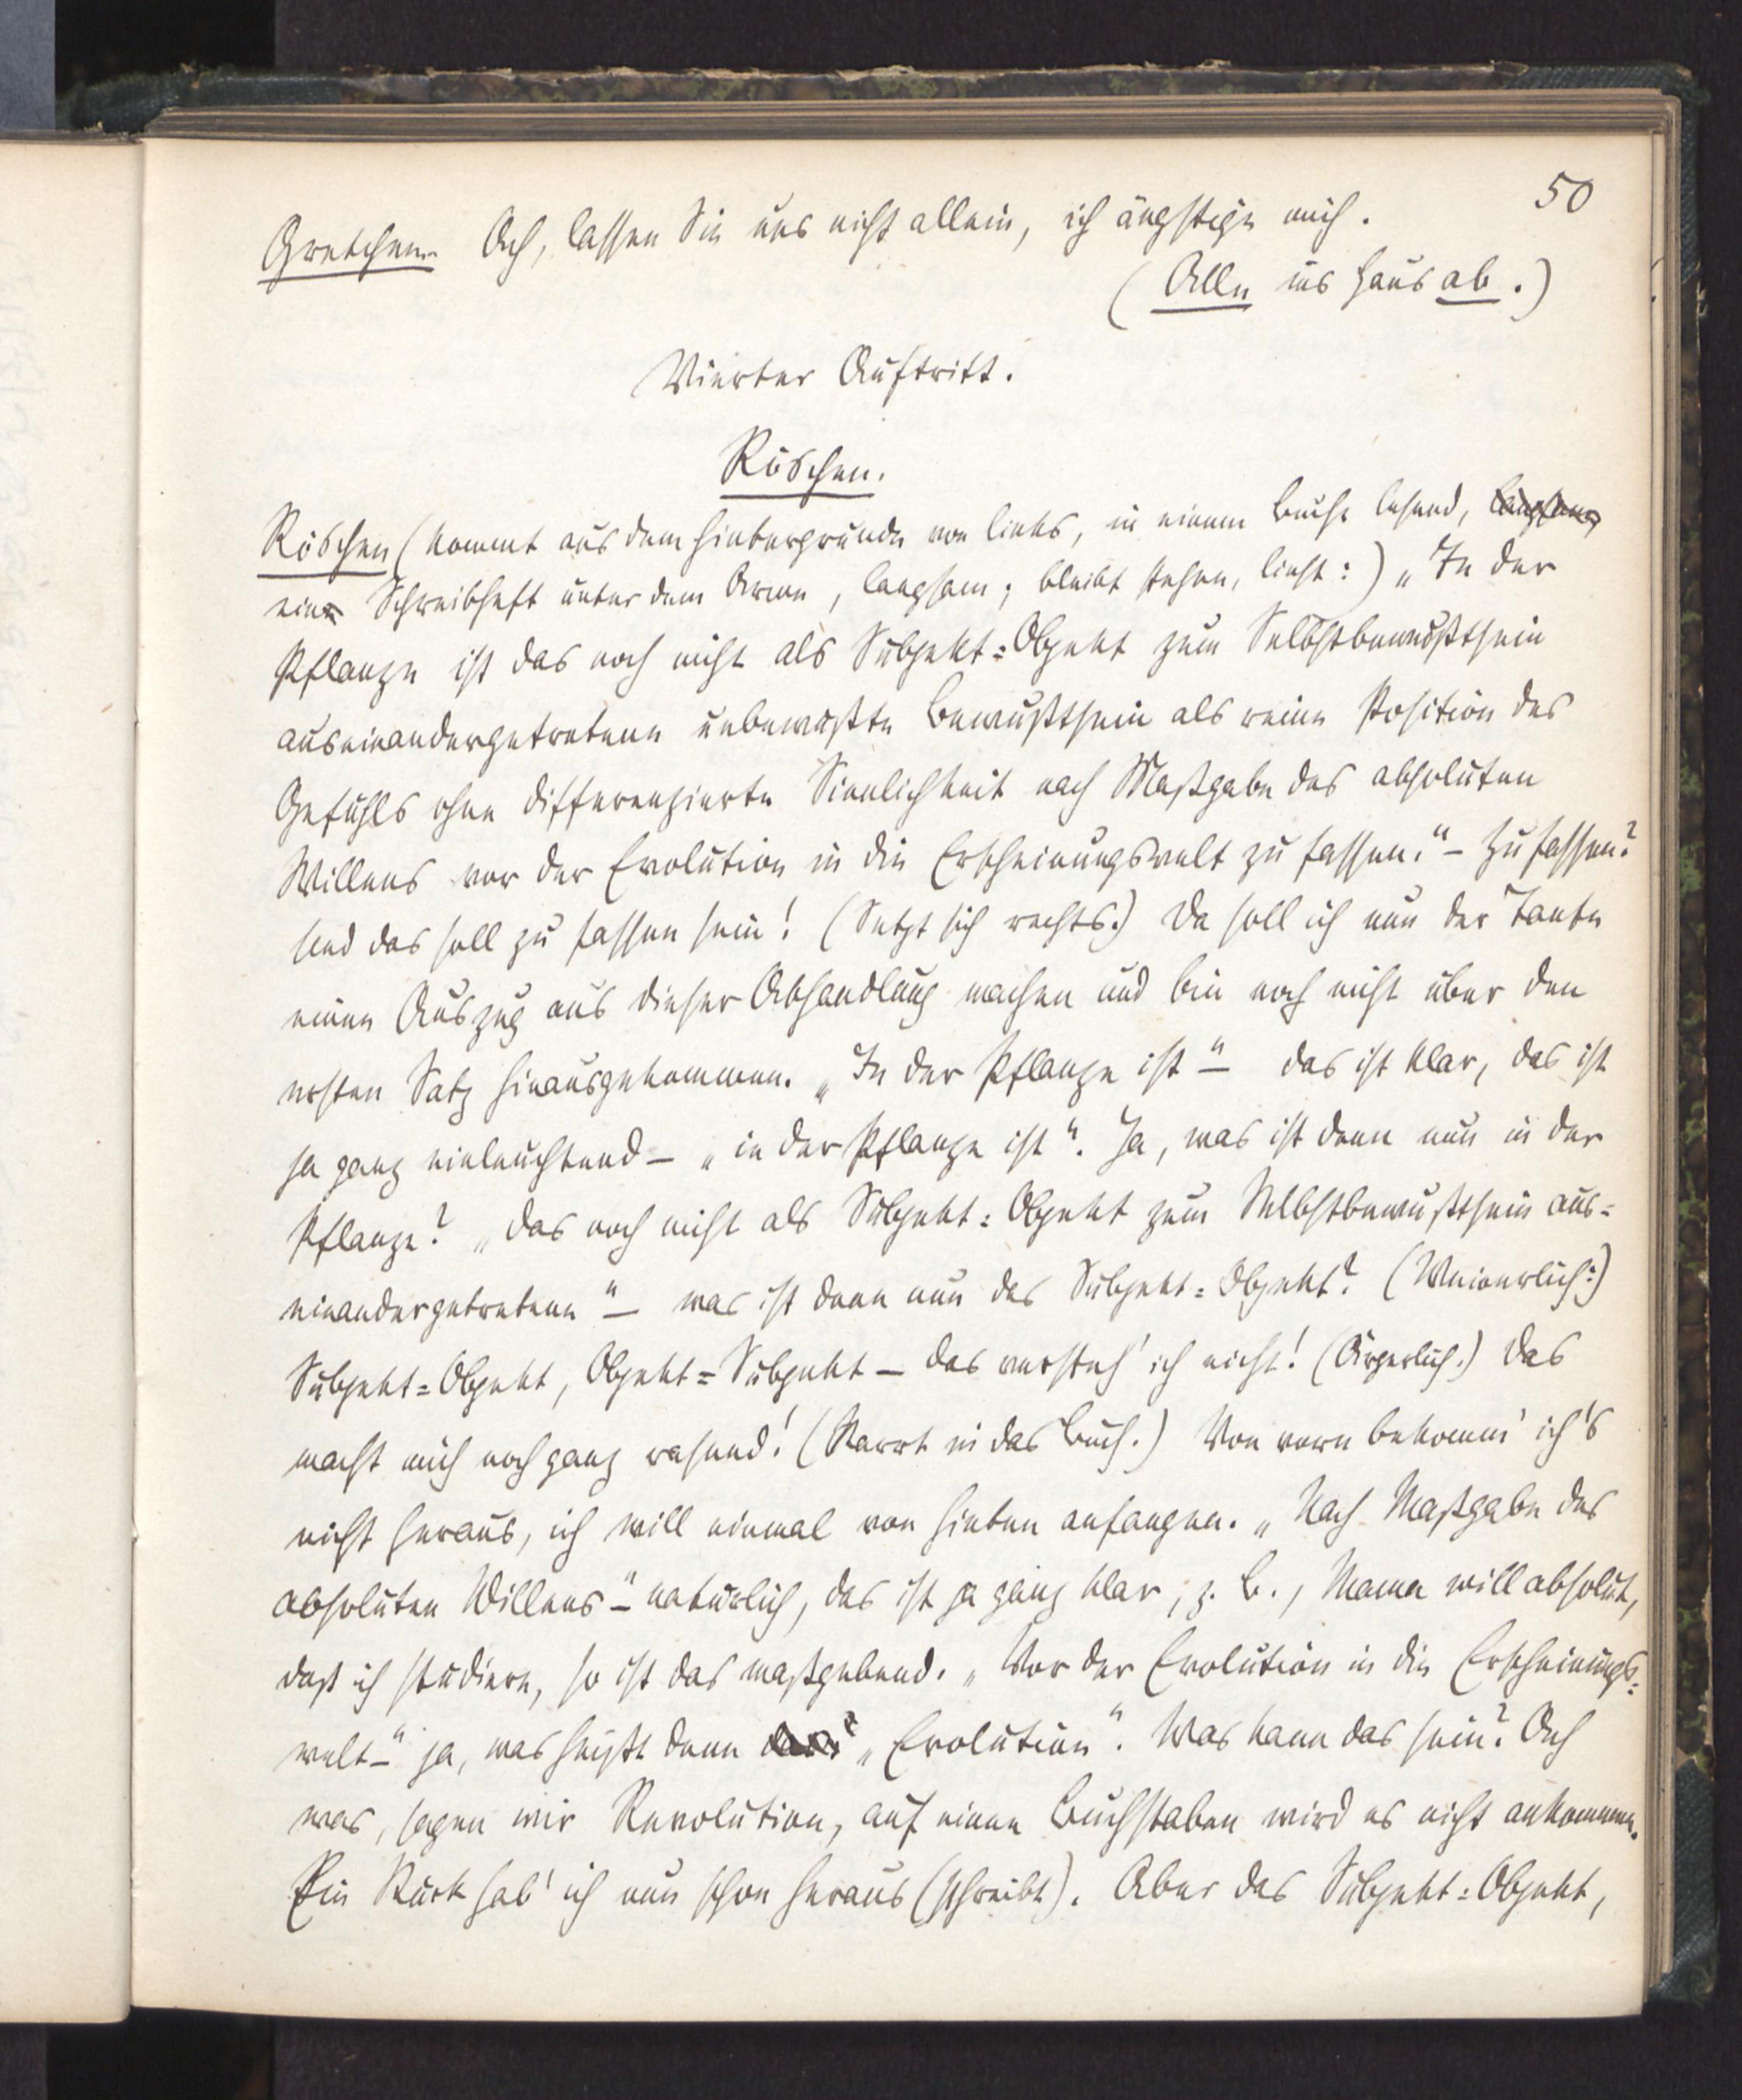 50
Gretchen. Ach, lassen Sie uns nicht allein, ich ängstige mich.
(Alle ins Haus ab.)
Vierter Auftritt.
Röschen.
Röschen (kommt aus dem Hintergrunde von links, in einem Buche lesend, langsam,
ein Schreibheft unter dem Arme, langsam; bleibt stehen, liest:) „In der
Pflanze ist das noch nicht als Subjekt=Objekt zum Selbstbewußtsein
auseinandergetretene unbewußte Bewußtsein als reine Position des
Gefühls ohne differenzierte Sinnlichkeit nach Maßgabe des absoluten
Willens vor der Evolution in die Erscheinungswelt zu fassen." – Zu fassen?
Und das soll zu fassen sein! (Setzt sich rechts.) Da soll ich nun der Tante
einen Auszug aus dieser Abhandlung machen und bin noch nicht über den
ersten Satz hinausgekommen. „In der Pflanze ist" – das ist klar, das ist
ja ganz einleuchtend – „in der Pflanze ist". Ja, was ist denn nun in der
Pflanze? „Das noch nicht als Subjekt=Objekt zum Selbstbewußtsein aus=
einandergetretene" – was ist denn nun das Subjekt=Objekt? (Weinerlich:)
Subjekt=Objekt, Objekt=Subjekt – das versteh' ich nicht! (Ärgerlich.) Das
macht mich noch ganz rasend! (Starrt in das Buch.) Von vorn bekomm' ich's
nicht heraus, ich will einmal von hinten anfangen. „Nach Maßgabe des
absoluten Willens" – natürlich, das ist ja ganz klar, z. B., Mama will absolut,
daß ich studiere, so ist das maßgebend. „Vor der Evolution in die Erscheinungs=
welt –" ja, was heißt denn „Evolution". Was kann das sein? Ach
was, sagen wir Revolution, auf einen Buchstaben wird es nicht ankommen.
Ein Stück hab' ich nun schon heraus (schreibt). Aber das Subjekt=Objekt,